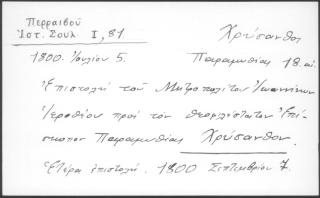 Περραιβοῦ
Ἱστ. Σουλ. I, 81
Χρύσανθος
1800. Ἰουλίου 5.
Παραμυθίας 18. αἰ.
Ἐπιστολὴ τοῦ Μητροπολίτου Ἰωαννίνων
Ἱεροθέου πρὸς τὸν θεοφιλέστατον Ἐπί-
σκοπον Παραμυθίας Χρύσανθον.
Ἑτέρα ἐπιστολή. 1800 Σεπτεμβρίου 7.